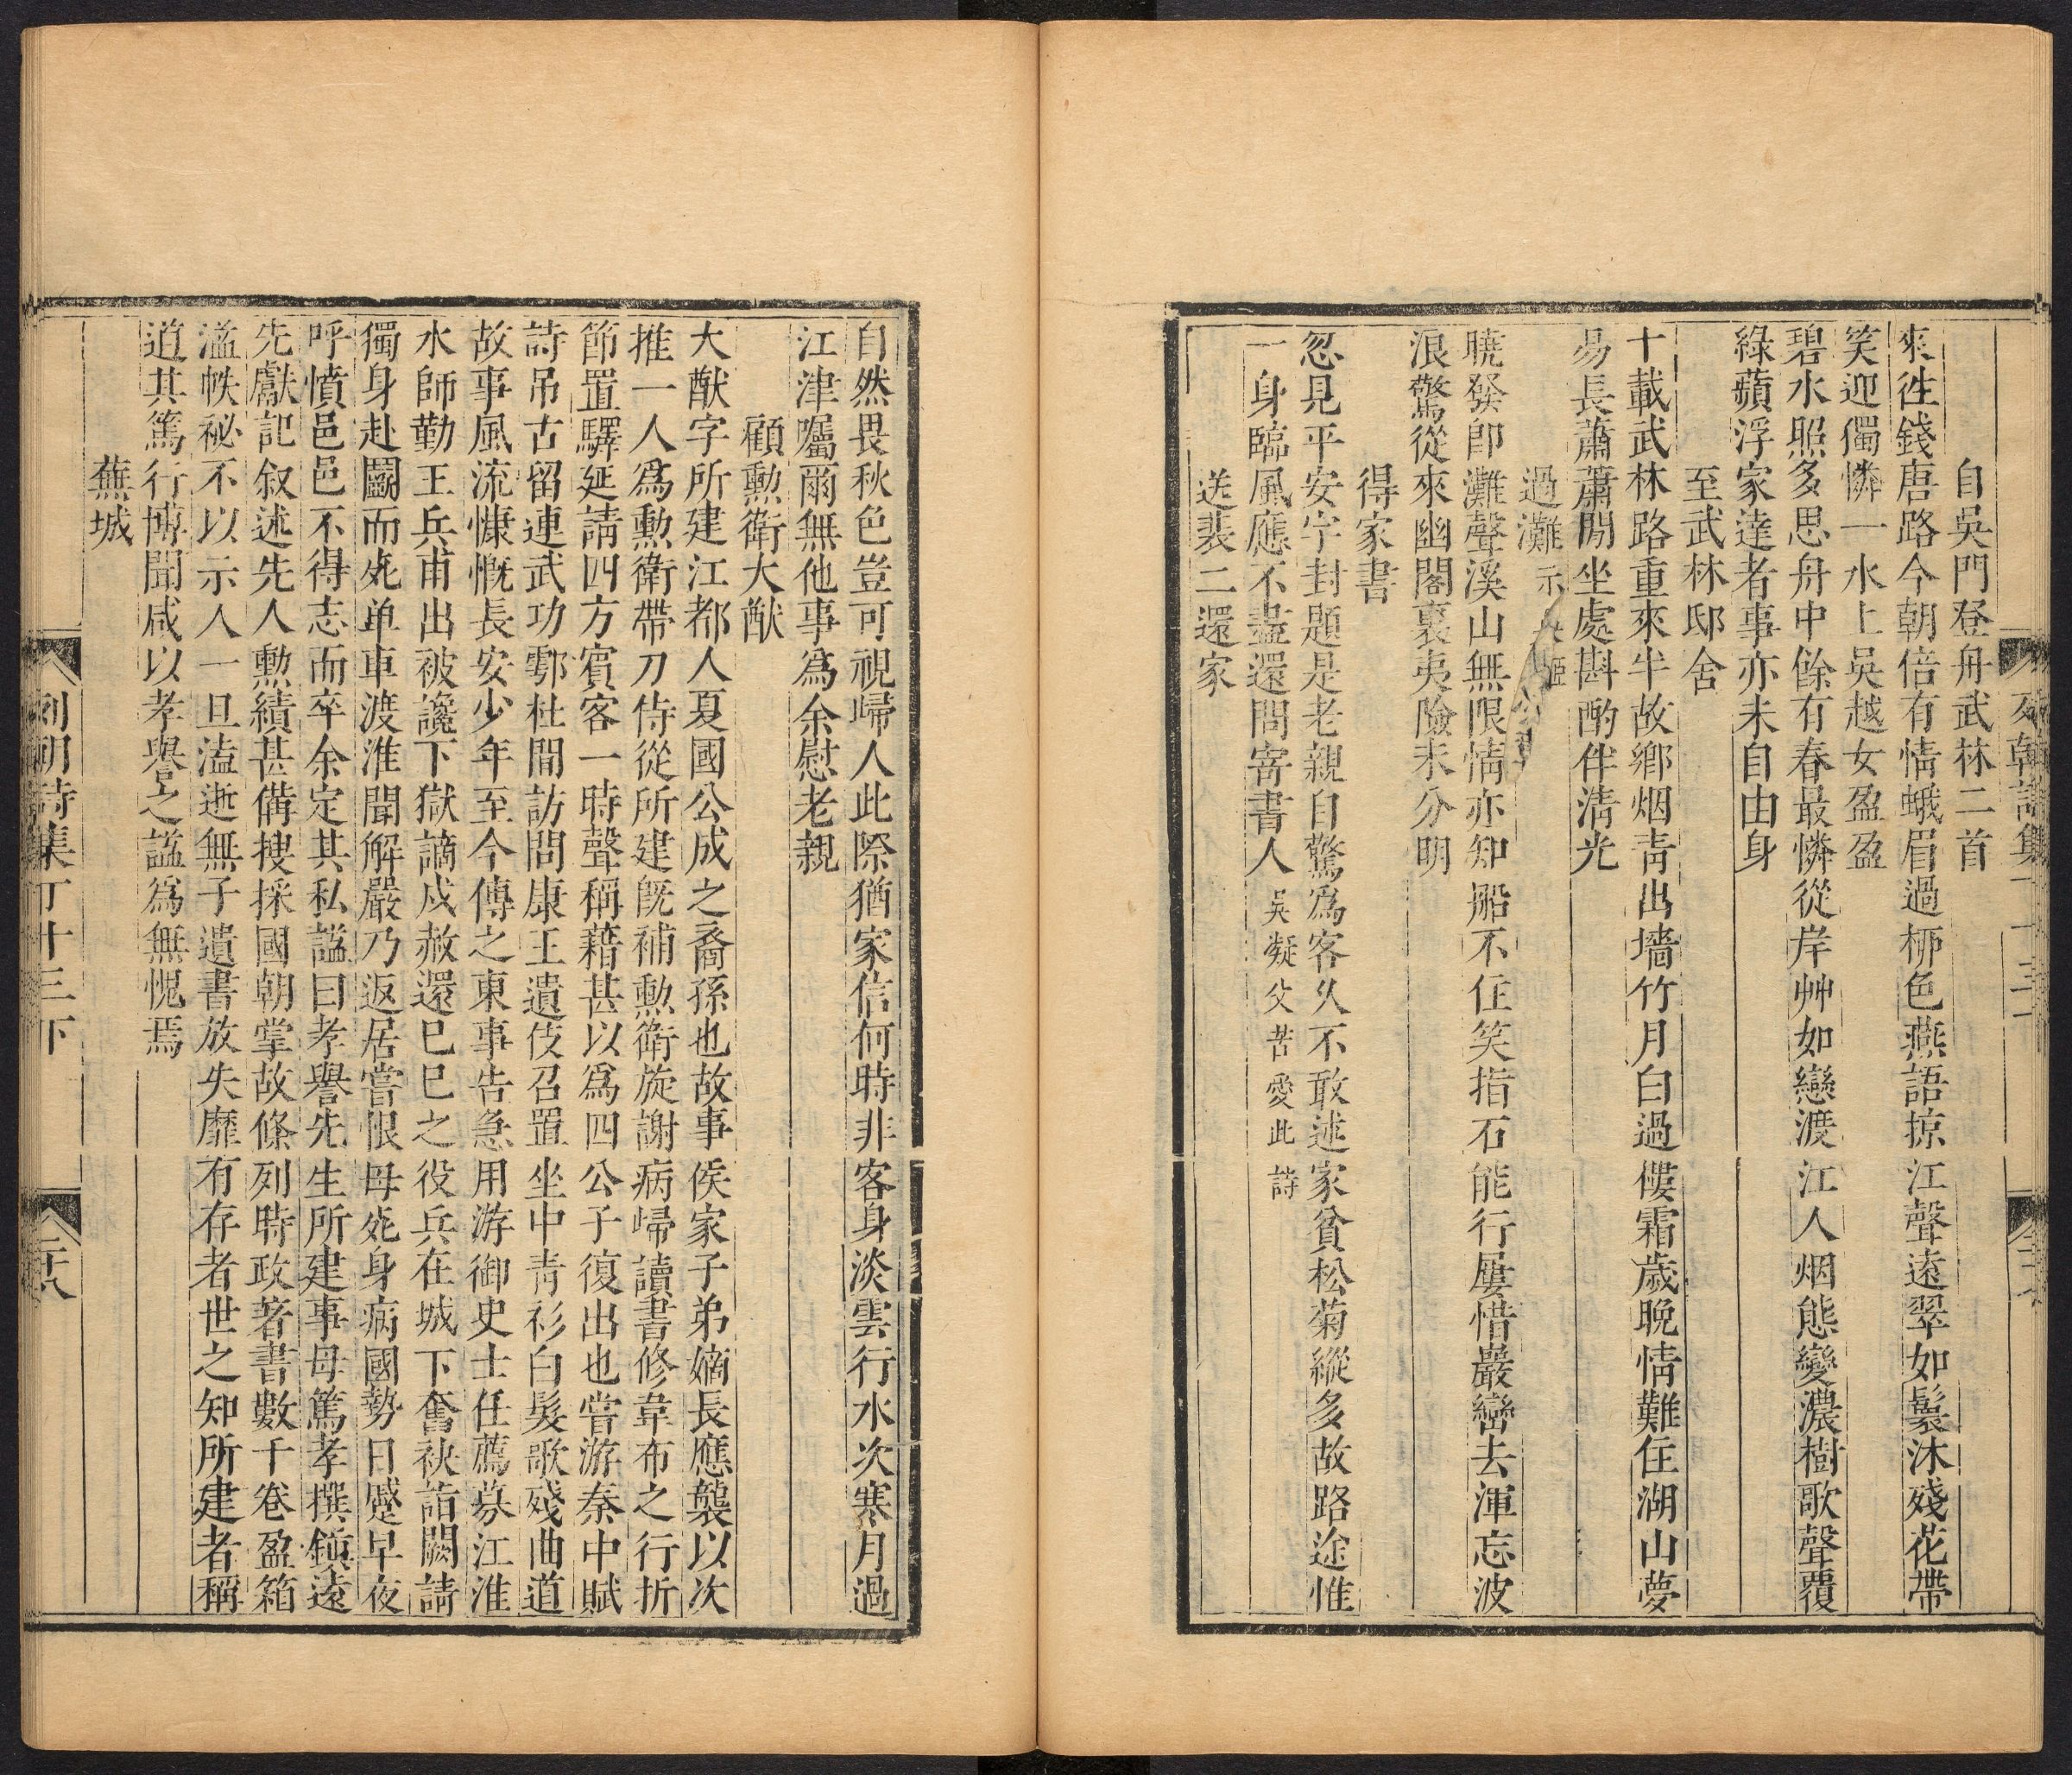 列朝詩集丁十三下
自吳門登舟武林二首
來往錢唐路今朝倍有情蛾眉過柳色燕語掠江聲遠翠如鬟沐殘花帶
笑迎獨憐一水上吳越女盈盈
碧水照多思舟中餘有春最憐從岸艸如戀渡江人烟態變濃樹歌聲覆
綠蘋浮家達者事亦未自由身
至武林邸舍
十載武林路重來半故鄉烟靑出墻竹月白過樓霜歲晚情難住湖山夢
易長蕭蕭閒坐處斟酌伴淸光
過灘示
曉發卽灘聲溪山無限情亦知船不住笑指石能行屢惜巖巒去渾忘波
浪驚從來幽閣裏夷險未分明
得家書
忽見平安字封題是老親自驚爲客久不敢述家貧松菊縱多故路途惟
一身臨風應不盡還問寄書人 吳凝父苦愛此詩
送裴二還家
自然畏秋色豈可視歸人此際猶家信何時非客身淡雲行水次寒月過
江津囑爾無他事爲余慰老親
顧勲衛大猷
大猷字所建江都人夏國公成之裔孫也故事侯家子弟嫡長應襲以次
推一人爲勲衛帶刀侍從所建旣補勲衛旋謝病歸讀書修韋布之行折
節置驛延請四方賓客一時聲稱藉甚以爲四公子復出也嘗游秦中賦
詩吊古留連武功鄠杜間訪問康王遺伎召置坐中靑衫白髮歌殘曲道
故事風流慷慨長安少年至今傳之東事告急用游御史士任薦募江淮
水師勤王兵甫出被讒下獄謫戍赦還巳巳之役兵在城下奮袂詣闕請
獨身赴鬭而死单車渡淮聞解嚴乃返居嘗恨母死身病國勢日蹙早夜
呼憤邑邑不得志而卒余定其私謚曰孝譽先生所建事母篤孝撰鎭遠
先獻記叙述先人勲績甚備搜採國朝掌故條列時政著書數千卷盈箱
溢帙祕不以示人一旦溘逝無子遺書放失靡有存者世之知所建者稱
道其篤行博聞咸以孝譽之謚爲無愧焉
蕪城
列朝詩集丁十三下
二十八